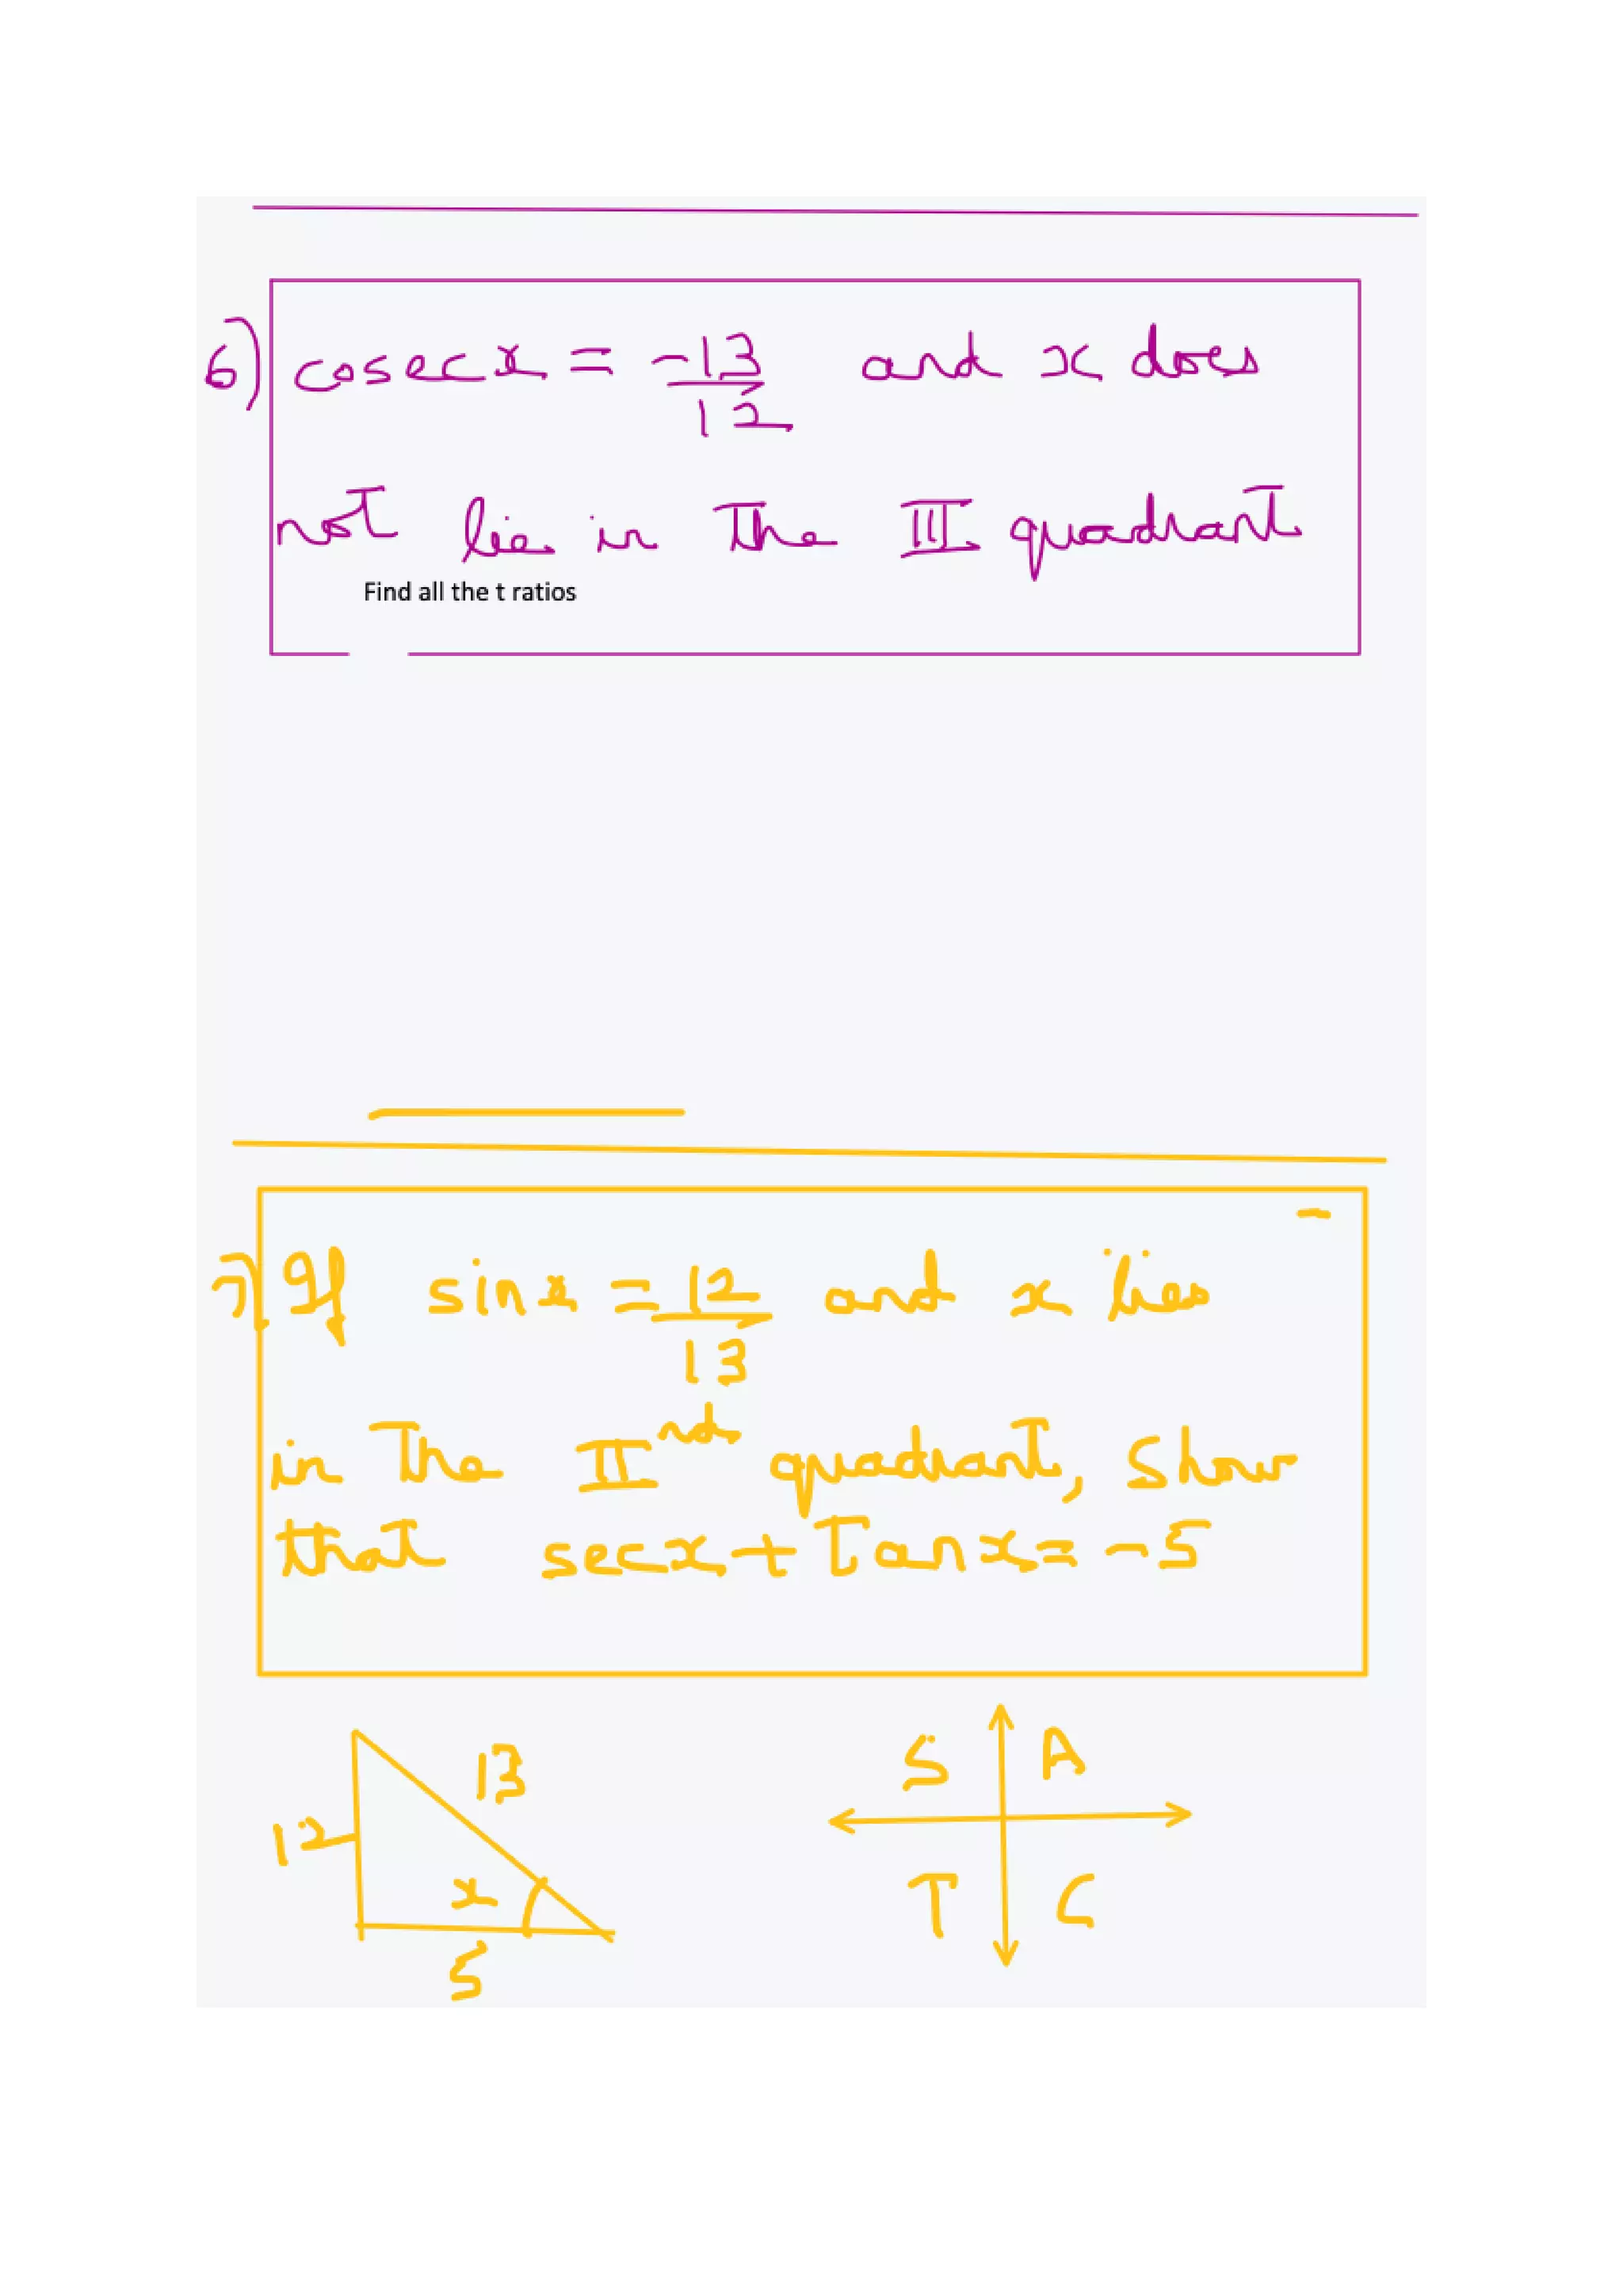 6) cosec x = -13/12 and x does
not lie in the III quadrant
Find all the t ratios
7) If sin x = 12/13 and x lies
in the II nd quadrant, show
that sec x + Tan x = -5
13
12
x
5
S A
T C